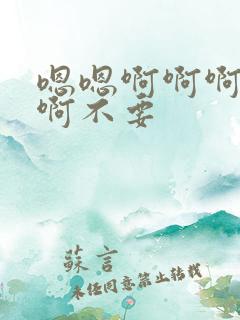 嗯嗯啊啊啊
啊不要
蘇言
未任同意禁止转载